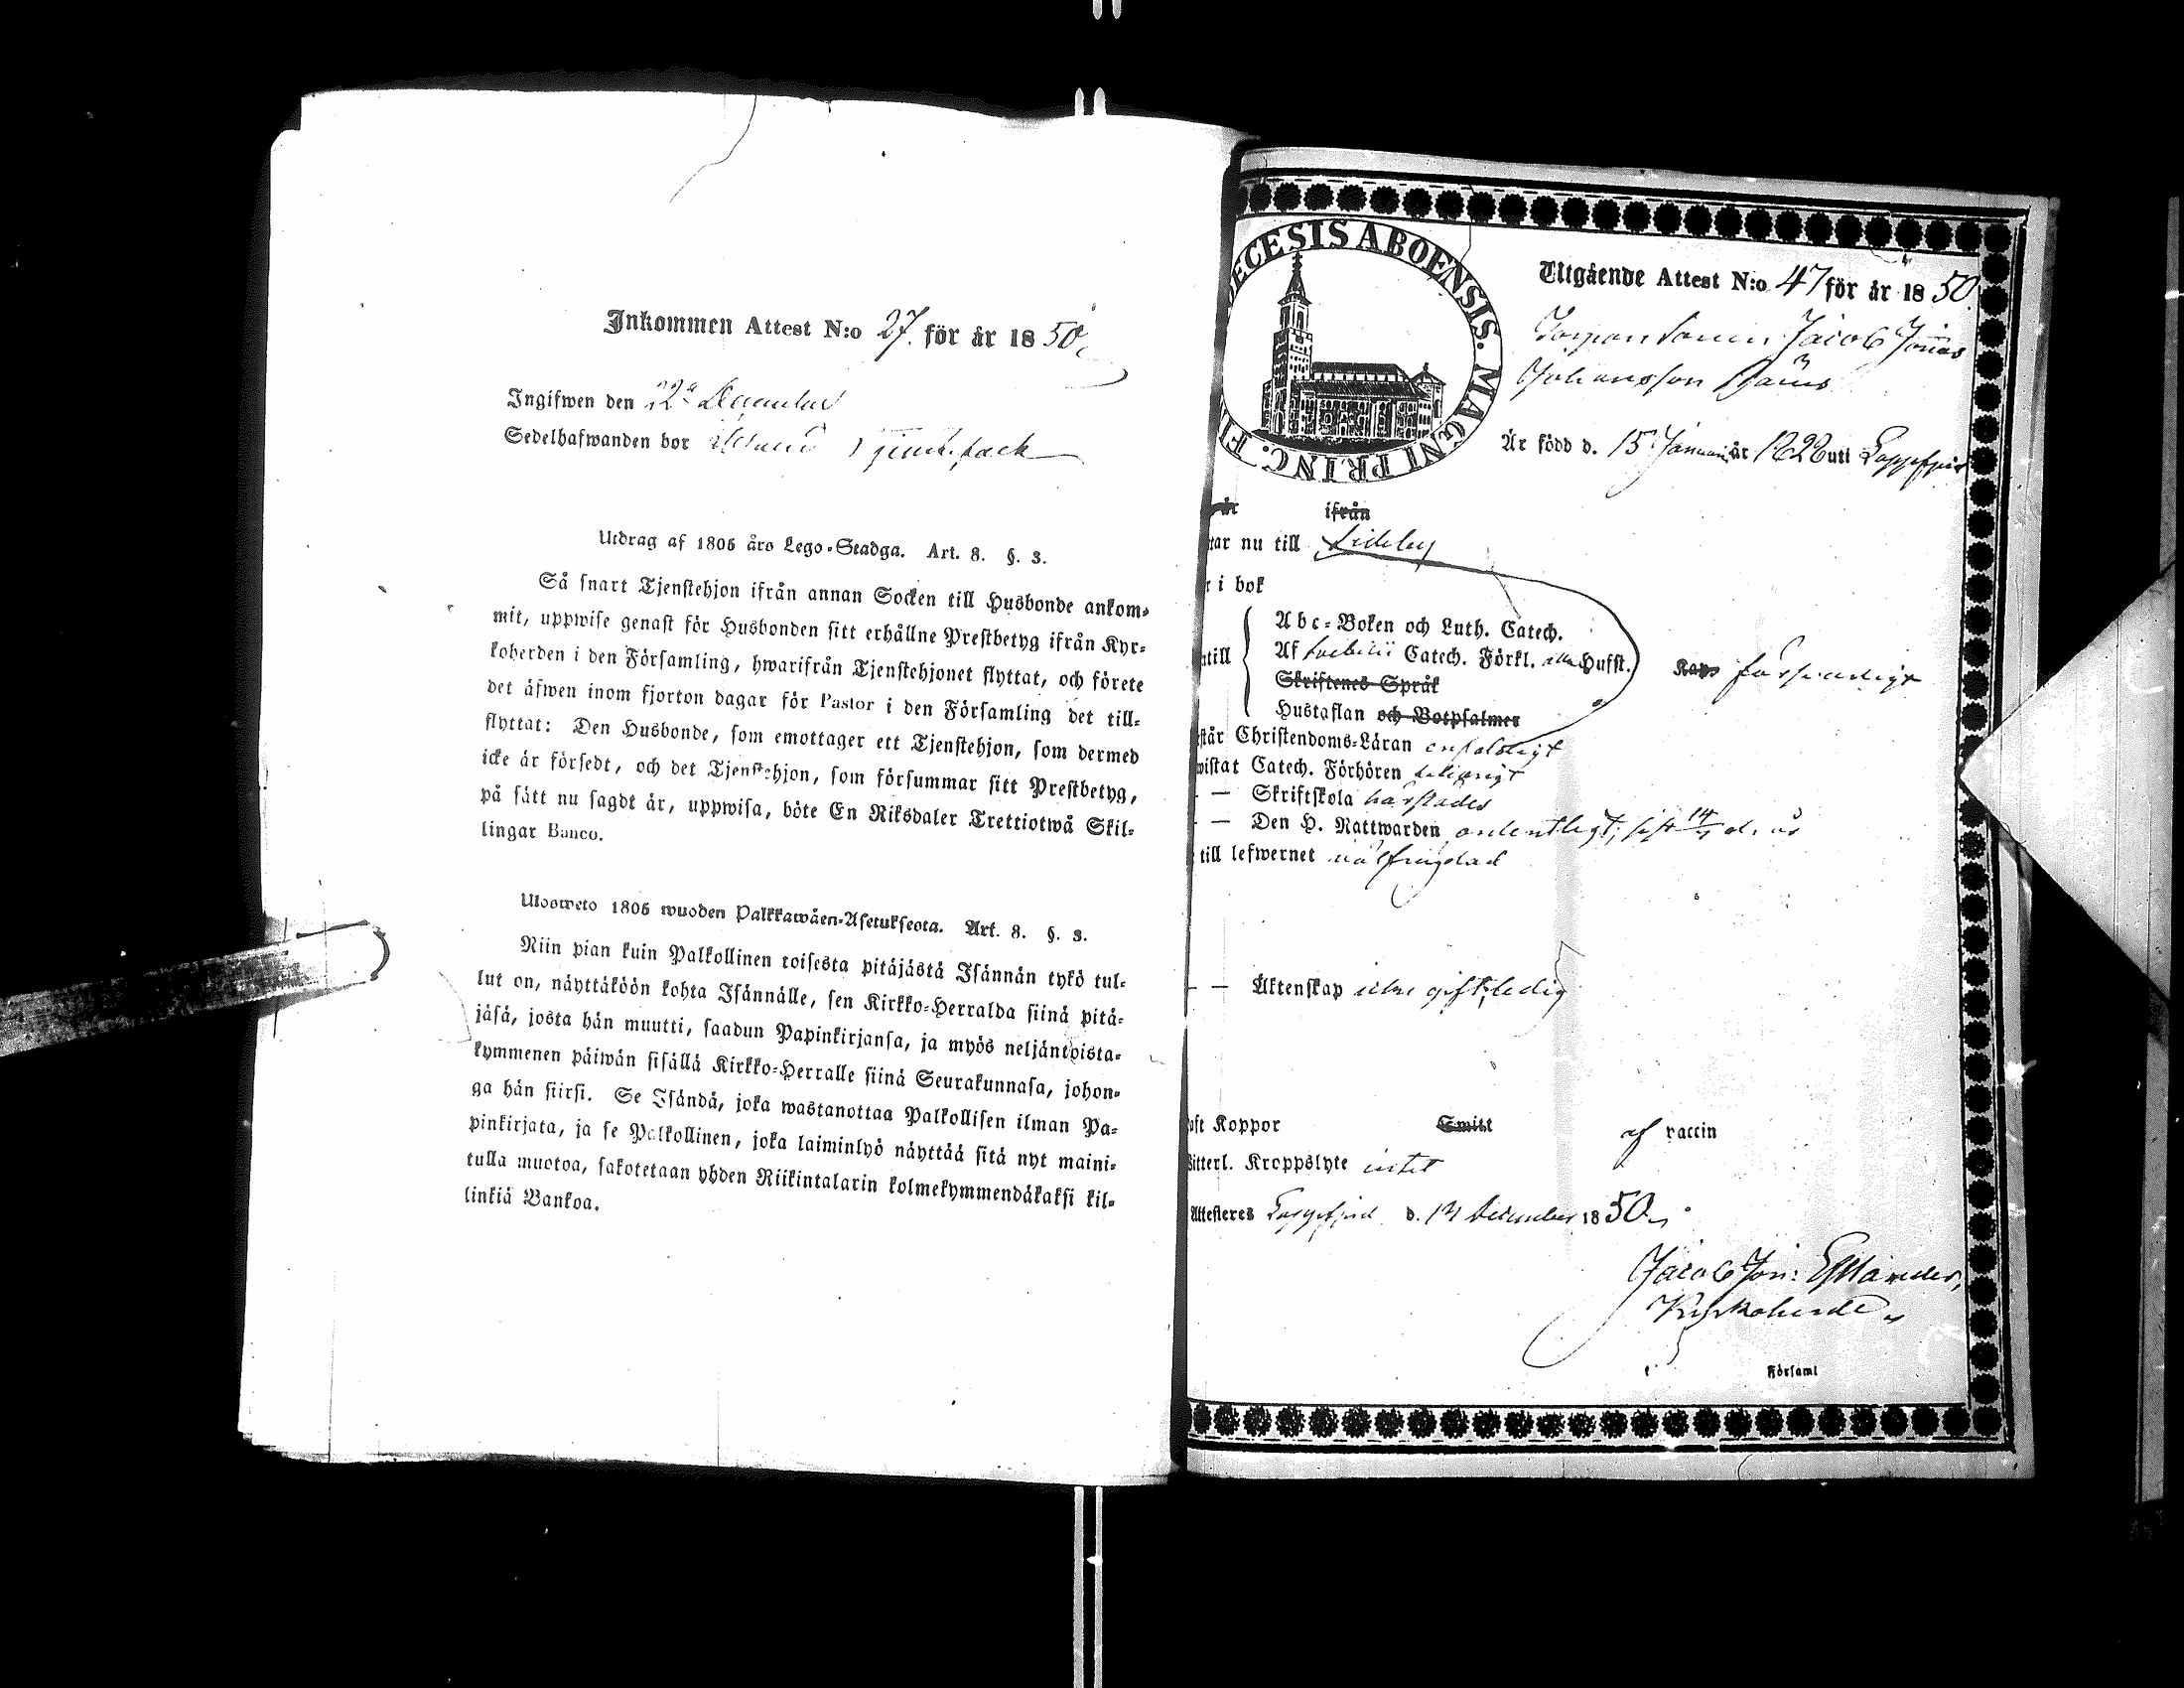 Inkommen Attest N:o 27. för år 1850
Ingifwen den 22a December
Sedelhafwanden bor
Utdrag af 1805 års Lego-Stadga. Art. 8. §. 3.
Så snart Tjenstehjon ifrån annan Socken till Husbonde ankom-
mit, uppwise genast för Husbonden sitt erhållne Prestbetyg ifrån Kyr-
koherden i den Församling, hwarifrån Tjenstehjonet flyttat, och förete
det äfwen inom fjorton dagar för Pastor i den Församling det till-
flyttat: Den Husbonde, som emottager ett Tjenstehjon, som dermed
icke är försedt, och det Tjenstehjon, som försummar sitt Prestbetyg,
på sätt nu sagdt är, uppwisa, böte En Riksdaler Trettiotwå Skil-
lingar Banco.
Ulosweto 1805 wuoden Palkkawäen-Asetuksesta. Art. 8. §. 3.
Niin pian kuin Palkollinen toisesta pitäjästä Isännän tykö tul-
lut on, näyttäköön kohta Isännälle, sen Kirkko-Herralda siinä pitä-
jäsä, josta hän muutti, saadun Papinkirjansa, ja myös neljäntoista-
kymmenen päiwän sisällä Kirkko-Herralle siinä Seurakunnasa, johon-
ga hän siirsi. Se Isändä, joka wastanottaa Palkollisen ilman Pa-
pinkirjata, ja se Palkollinen, joka laiminlyö näyttää sitä nyt maini-
tulla muotoa, sakotetaan yhden Riikintalarin kolmekymmendäkaksi kil-
linkiä Bankoa.
ECESIS ABOENSIS. MAGNI PRINC. F
Utgående Attest N:o 47 för år 1850
Jacob Jonas
Johansson
Är född d. 15 Januari år 1828 uti Lappfjerd
år ifrån
tar nu till Sideby
r i bok
ntill
Abc-Boken och Luth. Catech.
Af Svebilii Catech. Förkl. Husst.
Skriftenes Språk
Hustaflan och Botpsalmer
Kaps försvarligt
står Christendoms-Läran enfaldigt
wistat Catech. Förhören
- — Skriftskola härstädes
- — Den H. Nattwarden ordentligt, sist d. år
till lefwernet välfrejdad
- — Äktenskap icke gift, ledig
pst Koppor Smitt af vaccin
Witterl. Kroppslyte intet
Attesteres Lappfjerd d. 14 December 1850.
Jacob Jon: Estlander,
Kyrkoherde
Församl